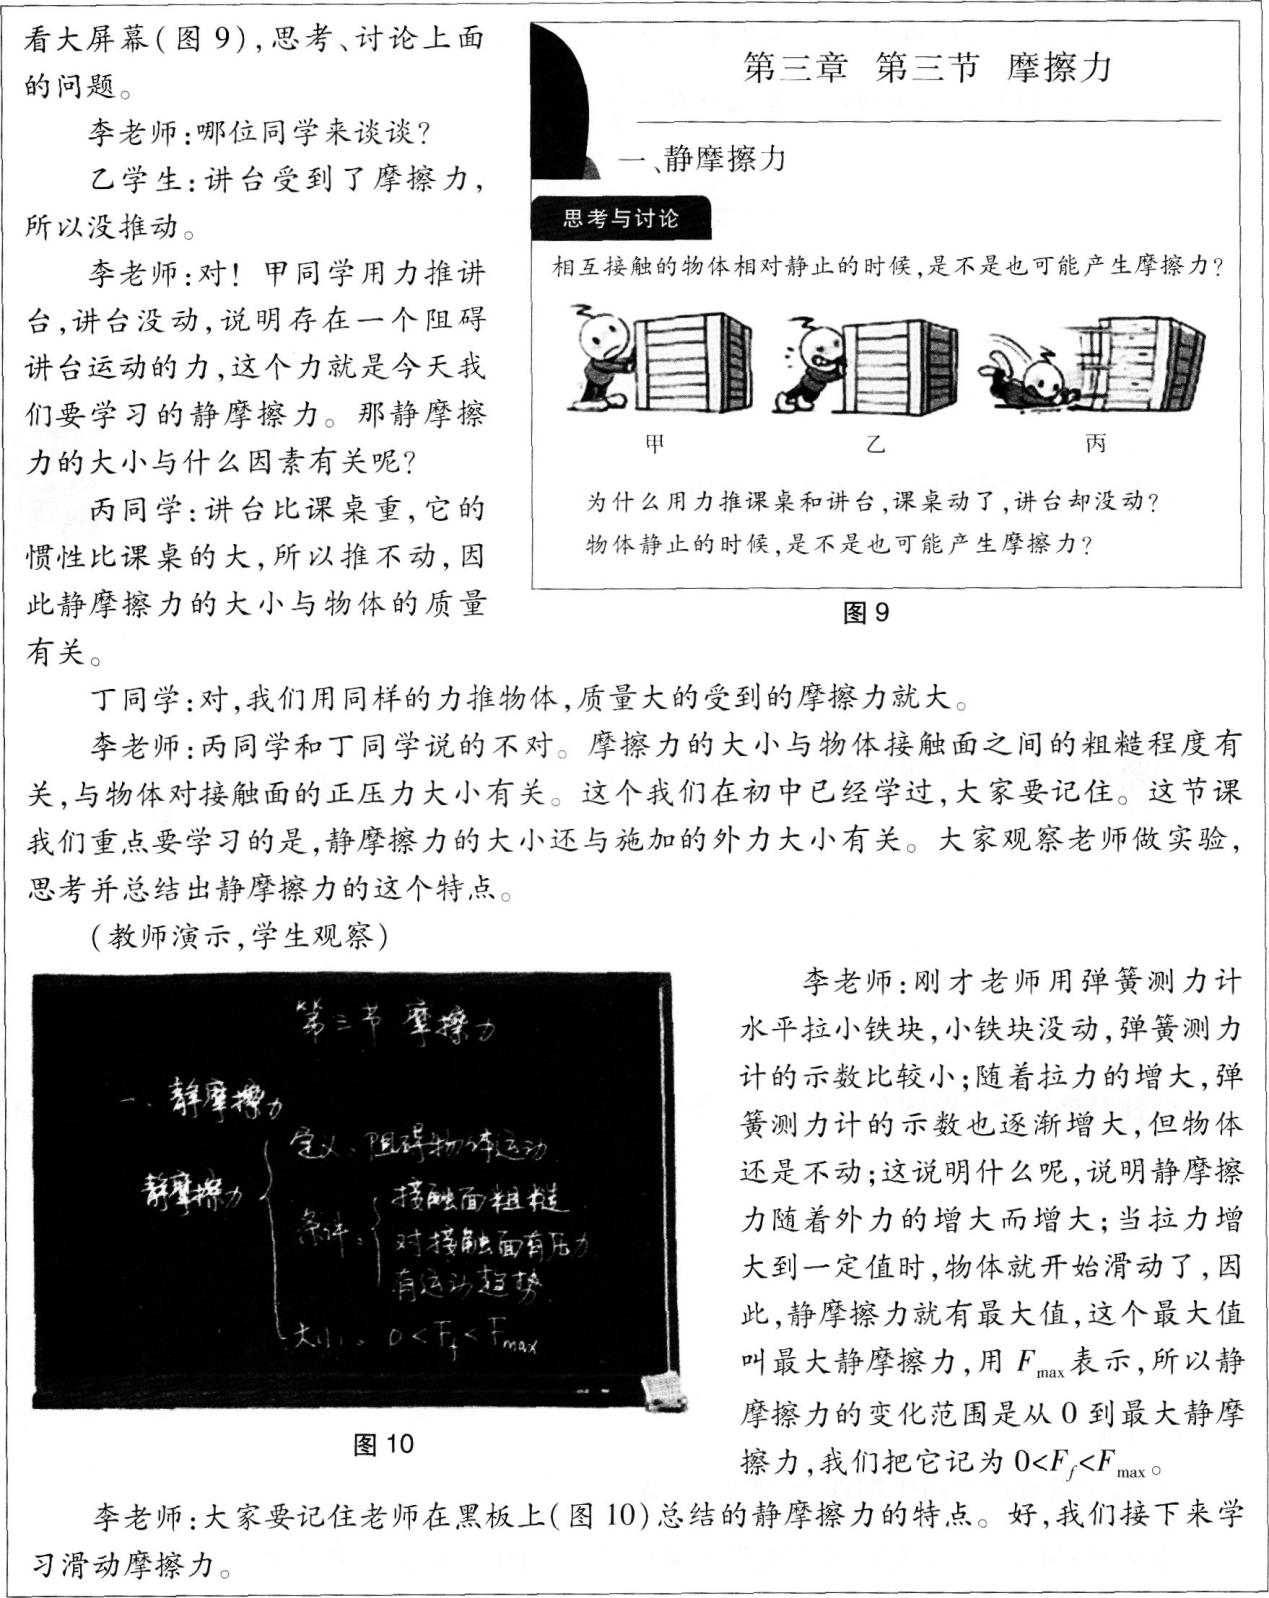 看大屏幕(图 9),思考、讨论上面
的问题。
李老师:哪位同学来谈谈?
乙学生:讲台受到了摩擦力,
所以没推动。
李老师:对! 甲同学用力推讲
台,讲台没动,说明存在一个阻碍
讲台运动的力,这个力就是今天我
们要学习的静摩擦力。那静摩擦
力的大小与什么因素有关呢?
丙同学:讲台比课桌重,它的
惯性比课桌的大,所以推不动,因
此静摩擦力的大小与物体的质量
有关。
第三章 第三节 摩擦力
一、静摩擦力
思考与讨论
相互接触的物体相对静止的时候,是不是也可能产生摩擦力?
甲
乙
丙
为什么用力推课桌和讲台,课桌动了,讲台却没动?
物体静止的时候,是不是也可能产生摩擦力?
图 9
丁同学:对,我们用同样的力推物体,质量大的受到的摩擦力就大。
李老师:丙同学和丁同学说的不对。摩擦力的大小与物体接触面之间的粗糙程度有
关,与物体对接触面的正压力大小有关。这个我们在初中已经学过,大家要记住。这节课
我们重点要学习的是,静摩擦力的大小还与施加的外力大小有关。大家观察老师做实验,
思考并总结出静摩擦力的这个特点。
(教师演示,学生观察)
第三节 摩擦力
一、静摩擦力
静摩擦力
定义:阻碍物体运动
条件:
接触面粗糙
对接触面有压力
有运动趋势
大小:0<Ff<Fmax
图 10
李老师:刚才老师用弹簧测力计
水平拉小铁块,小铁块没动,弹簧测力
计的示数比较小;随着拉力的增大,弹
簧测力计的示数也逐渐增大,但物体
还是不动;这说明什么呢,说明静摩擦
力随着外力的增大而增大;当拉力增
大到一定值时,物体就开始滑动了,因
此,静摩擦力就有最大值,这个最大值
叫最大静摩擦力,用 Fmax表示,所以静
摩擦力的变化范围是从 0 到最大静摩
擦力,我们把它记为 0<Ff<Fmax。
李老师:大家要记住老师在黑板上(图 10)总结的静摩擦力的特点。好,我们接下来学
习滑动摩擦力。